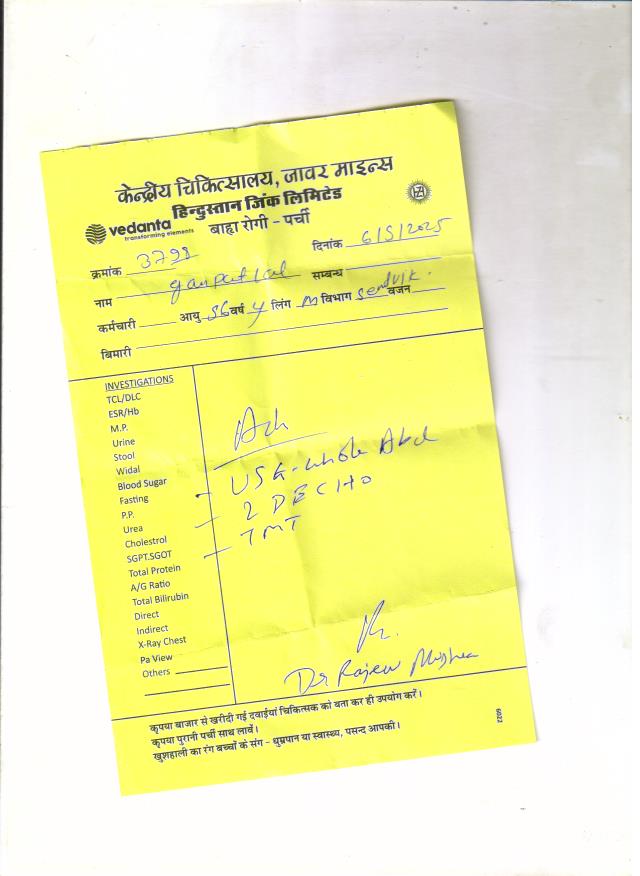 केन्द्रीय चिकित्सालय, जावर माइन्स
हिन्दुस्तान जिंक लिमिटेड
vedanta
transforming elements
बाह्य रोगी - पर्ची
क्रमांक 3798 दिनांक 6/5/2025
नाम ganpatlal सम्बन्ध
कर्मचारी आयु 56 वर्ष y लिंग M विभाग वजन
बिमारी
INVESTIGATIONS
TCL/DLC
ESR/Hb
M.P.
Urine
Stool
Widal
Blood Sugar
Fasting
P.P.
Urea
Cholestrol
SGPT.SGOT
Total Protein
A/G Ratio
Total Bilirubin
Direct
Indirect
X-Ray Chest
Pa View
Others
Adv
- USG - whole Abd
- 2 D ECHO
- TMT
Dr Rajeev Mishra
कृपया बाजार से खरीदी गई दवाईयां चिकित्सक को बता कर ही उपयोग करें।
कृपया पुरानी पर्ची साथ लावें।
खुशहाली का रंग बच्चों के संग - धुम्रपान या स्वास्थ्य, पसन्द आपकी।
6022